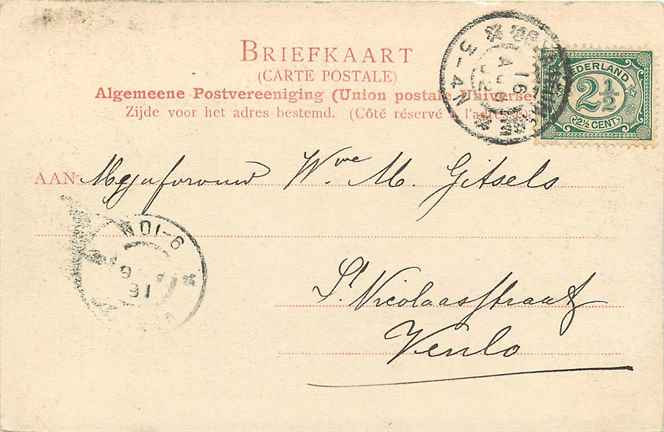 BRIEFKAART
(CARTE POSTALE)
Algemeene Postvereeniging (Union postale Universelle)
Zijde voor het adres bestemd. (Côté réservé à l'adresse)
NEDERLAND
2½
(2½ CENT)
3-4N
16
AUG
AAN Mejufvrouw Wwe M. Gitsels
St Nicolaasstraat
Venlo
9-10N
16